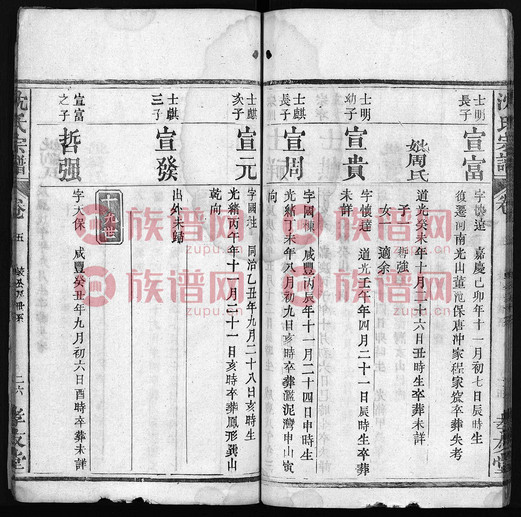 沈氏宗譜
卷
士明
長子
宣富
字 遠 嘉慶己卯年十一月初七日辰時生
復遷河南光山董龍保唐冲家程家窊卒葬失考
妣周氏
道光癸未年十月二十六日丑時生卒葬未詳
子 哲强
女 適余
士明
幼子
宣貴
字懷達 道光壬午年四月二十一日辰時生卒葬
未詳
士麒
長子
宣周
字國棟 咸豐丙辰年十一月二十四日申時生
光緒丁未年八月初九日亥時卒葬 泥灣申山寅
向
士麒
次子
宣元
字國柱 同治乙丑年九月二十八日亥時生
光緒丙午年十一月二十一日亥時卒葬鳳形巽山
乾向
士麒
三子
宣發
出外未歸
十九世
宣富
之子
哲强
字大保 咸豐癸丑年九月初六日酉時卒葬未詳
沈氏宗譜
卷 五
二六
孝友堂
族谱网
zupu.cn